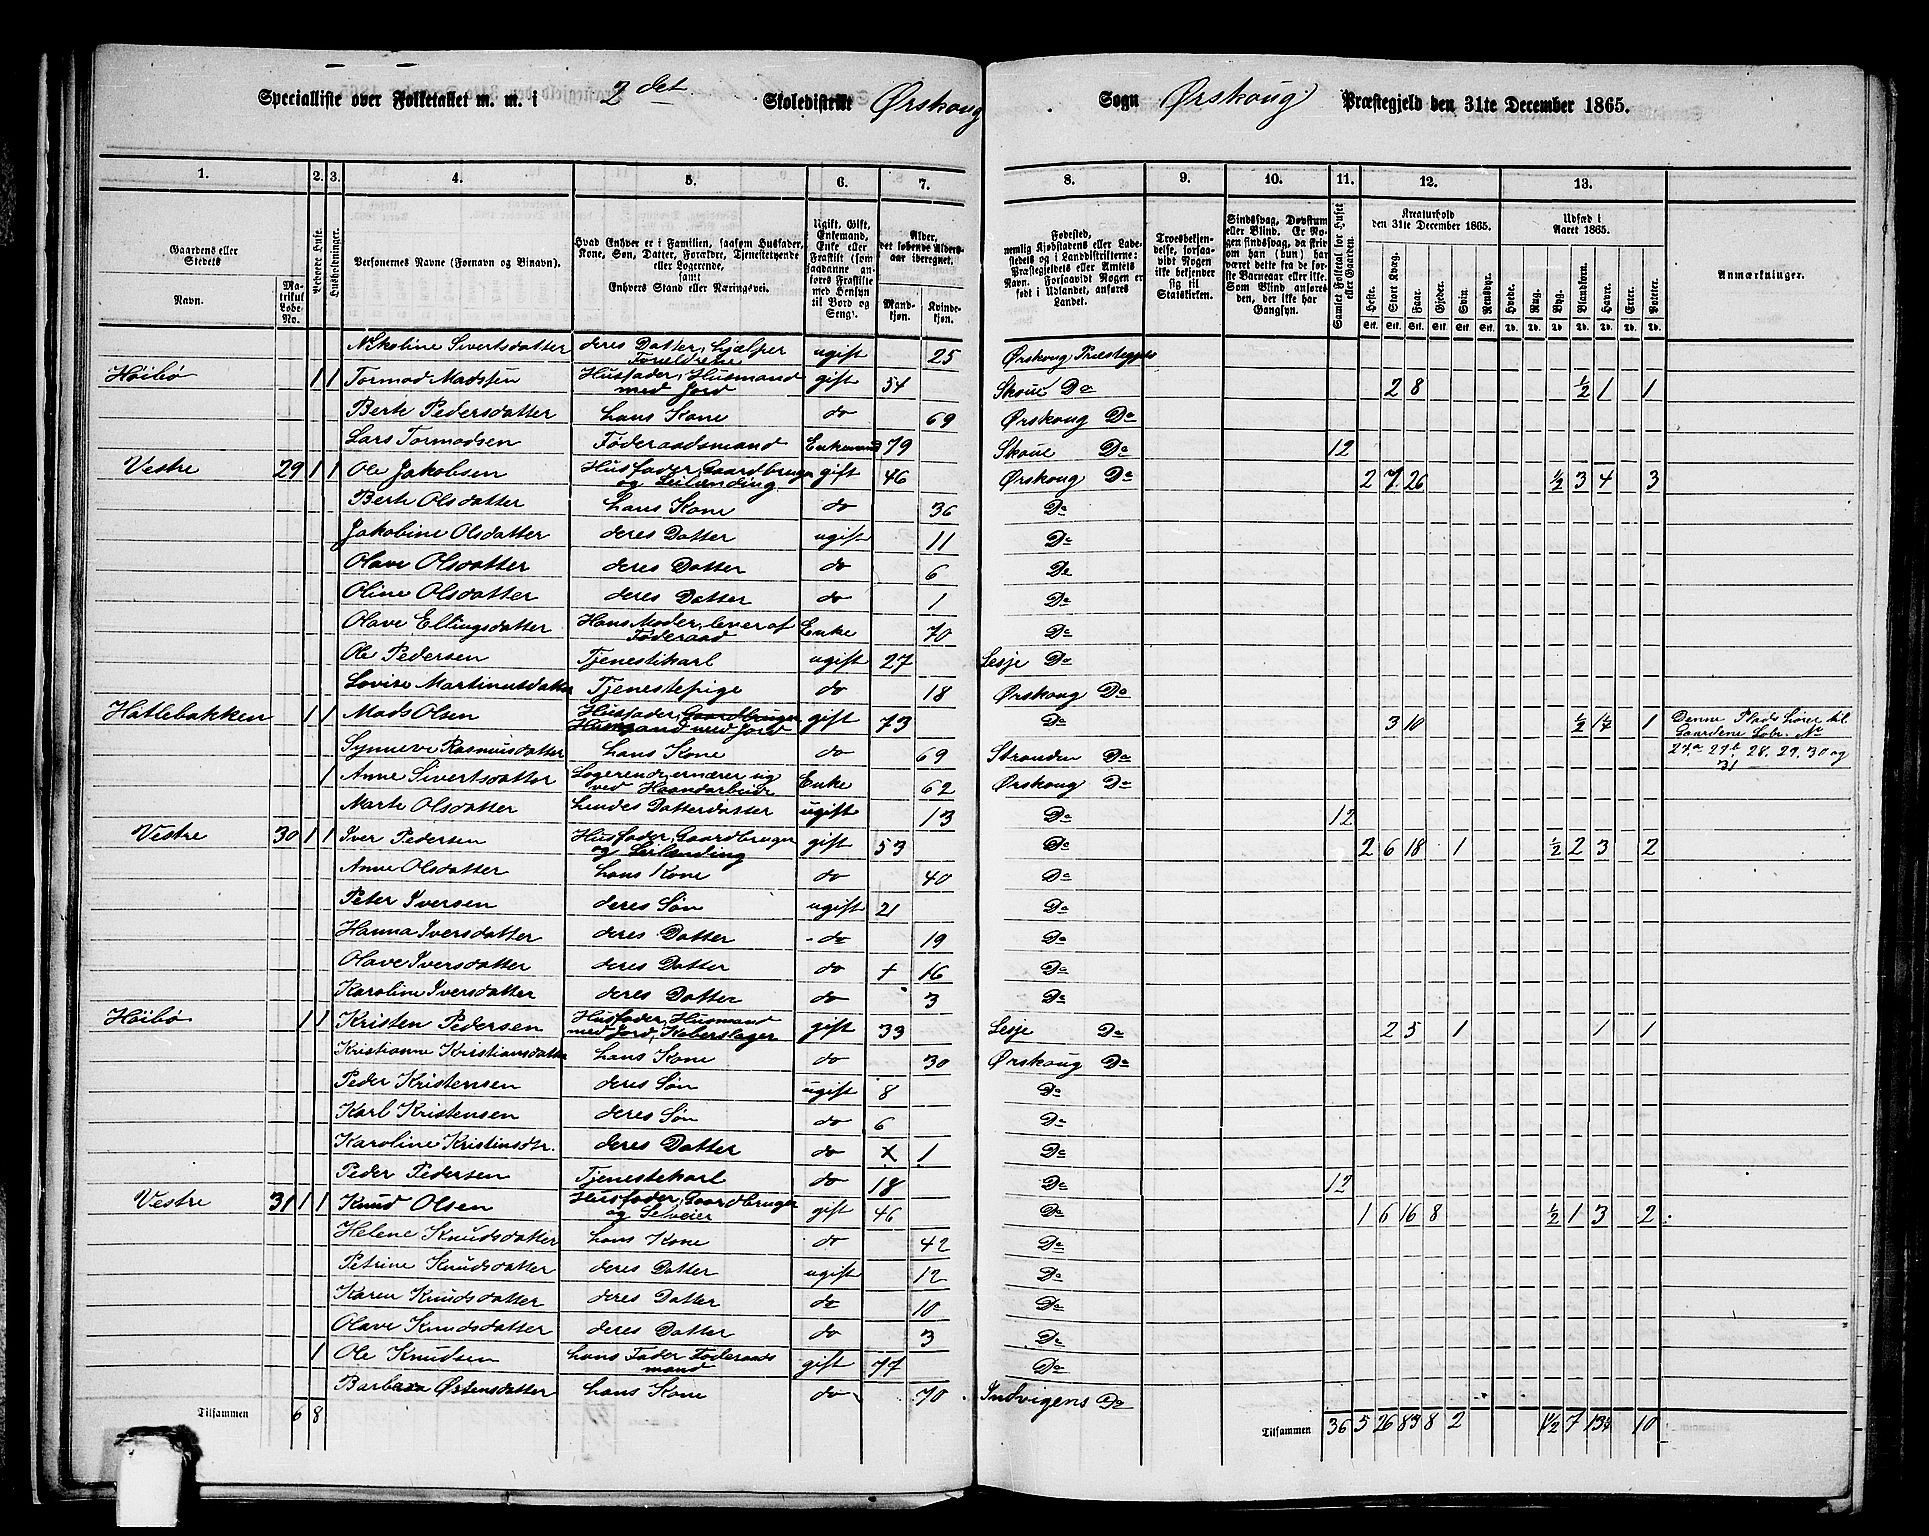 Specialliste over Folketallet m. m. i 2det Skoledistrikt Ørskoug Sogn Ørskoug Præstegjeld den 31te December 1865.
1. 2. 3. 4. 5. 6. 7. 8. 9. 10. 11. 12. 13.
Gaardens eller Stedets
Navn. Matrikul Løbe-No.
Beboede Huse.
Husholdninger.
Personernes Navne (Fornavn og Binavn).
Hvad Enhver er i Familien, saasom Husfader, Kone, Søn, Datter, Forældre, Tjenestetyende eller Logerende, samt Enhvers Stand eller Næringsvei.
Ugift, Gift, Enkemand, Enke eller Fraskilt (som saadanne anføres Fraskilte med Hensyn til Bord og Seng).
Alder, det løbende Aldersaar iberegnet.
Mandkjøn. Kvindekjøn.
Fødested, nemlig Kjøbstadens eller Ladestedets og i Landdistrikterne: Præstegjeldets eller Amtets Navn. Forsaavidt Nogen er født i Udlandet, anføres Landet.
Troesbekjendelse, forsaavidt Nogen ikke bekjender sig til Statskirken.
Sindssvag, Døvstum eller Blind. Er Nogen sindssvag, da skrives om han (hun) har været dette fra de første Barneaar eller ikke. Som Blind anføres den, der ikke har Gangsyn.
Samlet Folketal for Huset eller Gaarden.
Kreaturhold den 31te December 1865.
Heste. Stort Kvæg. Faar. Gjeder. Svin. Rensdyr.
Udsæd i Aaret 1865.
Hvede. Rug. Byg. Blandkorn. Havre. Erter. Poteter.
Anmærkninger.
Nikoline Sivertsdatter deres Datter, hjælper Forældrene ugift 25 Ørskoug Præstegjeld
Høibø 1 1 Tormod Madssen Husfader, Husmand med Jord gift 54 Skoue Do 2 8 ½ 1 1
Berte Pedersdatter hans Kone do 69 Ørskoug Do
Lars Tormodsen Føderaadsmand Enkemand 79 Skoue Do 12
Vestre 29 1 1 Ole Jakobsen Husfader, Gaardbruger og Leilænding gift 46 Ørskoug Do 2 7 26 ½ 3 4 3
Berte Olsdatter hans Kone do 36 Do
Jakobine Olsdatter deres Datter ugift 11 Do
Olave Olsdatter deres Datter do 6 Do
Oline Olsdatter deres Datter do 1 Do
Olave Ellingsdatter Hans Moder, lever af Føderaad Enke 70 Do
Ole Pedersen Tjenestekarl ugift 27 Lesje Do
Lovise Martinusdatter Tjenestepige do 18 Ørskoug Do
Hatlebakken 1 1 Mads Olsen Husfader, Gaardbruger Husmand med Jord gift 73 Do 3 10 ½ 1¼ 1 Denne Plads hører til
Gaardene Løbr. No
Synneve Rasmusdatter hans Kone do 69 Stranden Do 27a 27b 28. 29. 30 og
31
1 Anne Sivertsdatter Logerende, ernærer sig ved Haandarbeide Enke 62 Ørskoug Do
Marte Olsdatter hendes Datterdatter ugift 13 Do 12
Vestre 30 1 1 Iver Pedersen Husfader, Gaardbruger og Leilænding gift 53 Do 2 6 18 1 ½ 2 3 2
Anne Olsdatter hans Kone do 40 Do
Peter Iversen deres Søn ugift 21 Do
Hanna Iversdatter deres Datter do 19 Do
Olave Iversdatter deres Datter do + 16 Do
Karoline Iversdatter deres Datter do 3 Do
Høibø 1 1 Kristen Pedersen Husfader, Husmand med Jord, Koberslager gift 33 Lesje Do 2 5 1 1 1
Kristianne Kristiansdatter hans Kone do 30 Ørskoug Do
Peder Kristensen deres Søn ugift 8 Do
Karl Kristensen deres Søn do 6 Do
Karoline Kristinsdtr. deres Datter do x 1 Do
Peder Pedersen Tjenestekarl do 18 Do 12
Vestre 31 1 1 Knud Olsen Husfader, Gaardbruger og Selveier gift 46 Do 1 6 16 8 ½ 1 3 2
Helene Knudsdatter hans Kone do 42 Do
Petrine Knudsdatter deres Datter ugift 12 Do
Karen Knudsdatter deres Datter do 10 Do
Olave Knudsdatter deres Datter do 3 Do
1 Ole Knudsen hans Fader Føderaadsmand gift 77 Do
Barbara Østensdatter hans Kone do 70 Indvigens Do
Tilsammen 6 8 Tilsammen 36 5 26 83 8 2 1½ 7 13¼ 10